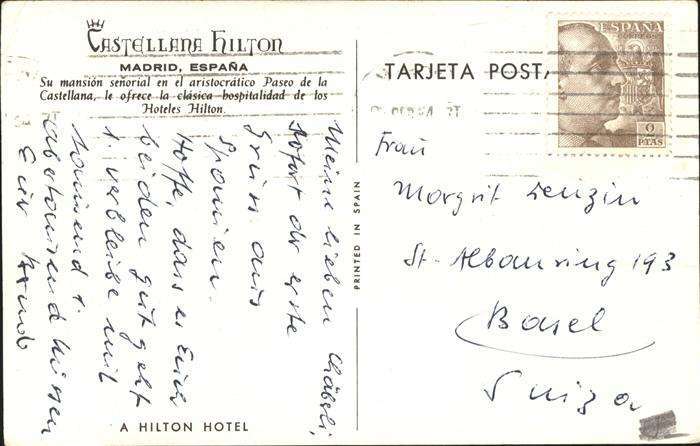 CASTELLANA HILTON
MADRID, ESPAÑA
Su mansión señorial en el aristocrático Paseo de la
Castellana, le ofrece la clásica hospitalidad de los
Hoteles Hilton.
TARJETA POST
ESPAÑA
CORREOS
2
PTAS
PRINTED IN SPAIN
Frau
Margrit Lenzin
St. Albanring 193
Basel
Suiza
Meine lieben
sofort der erste
Gruss aus
Spanien.
Hoffe, dass es Euch
beiden gut geht
u. verbleibe mit
tausend u.
abertausend Küssen
Euer
A HILTON HOTEL